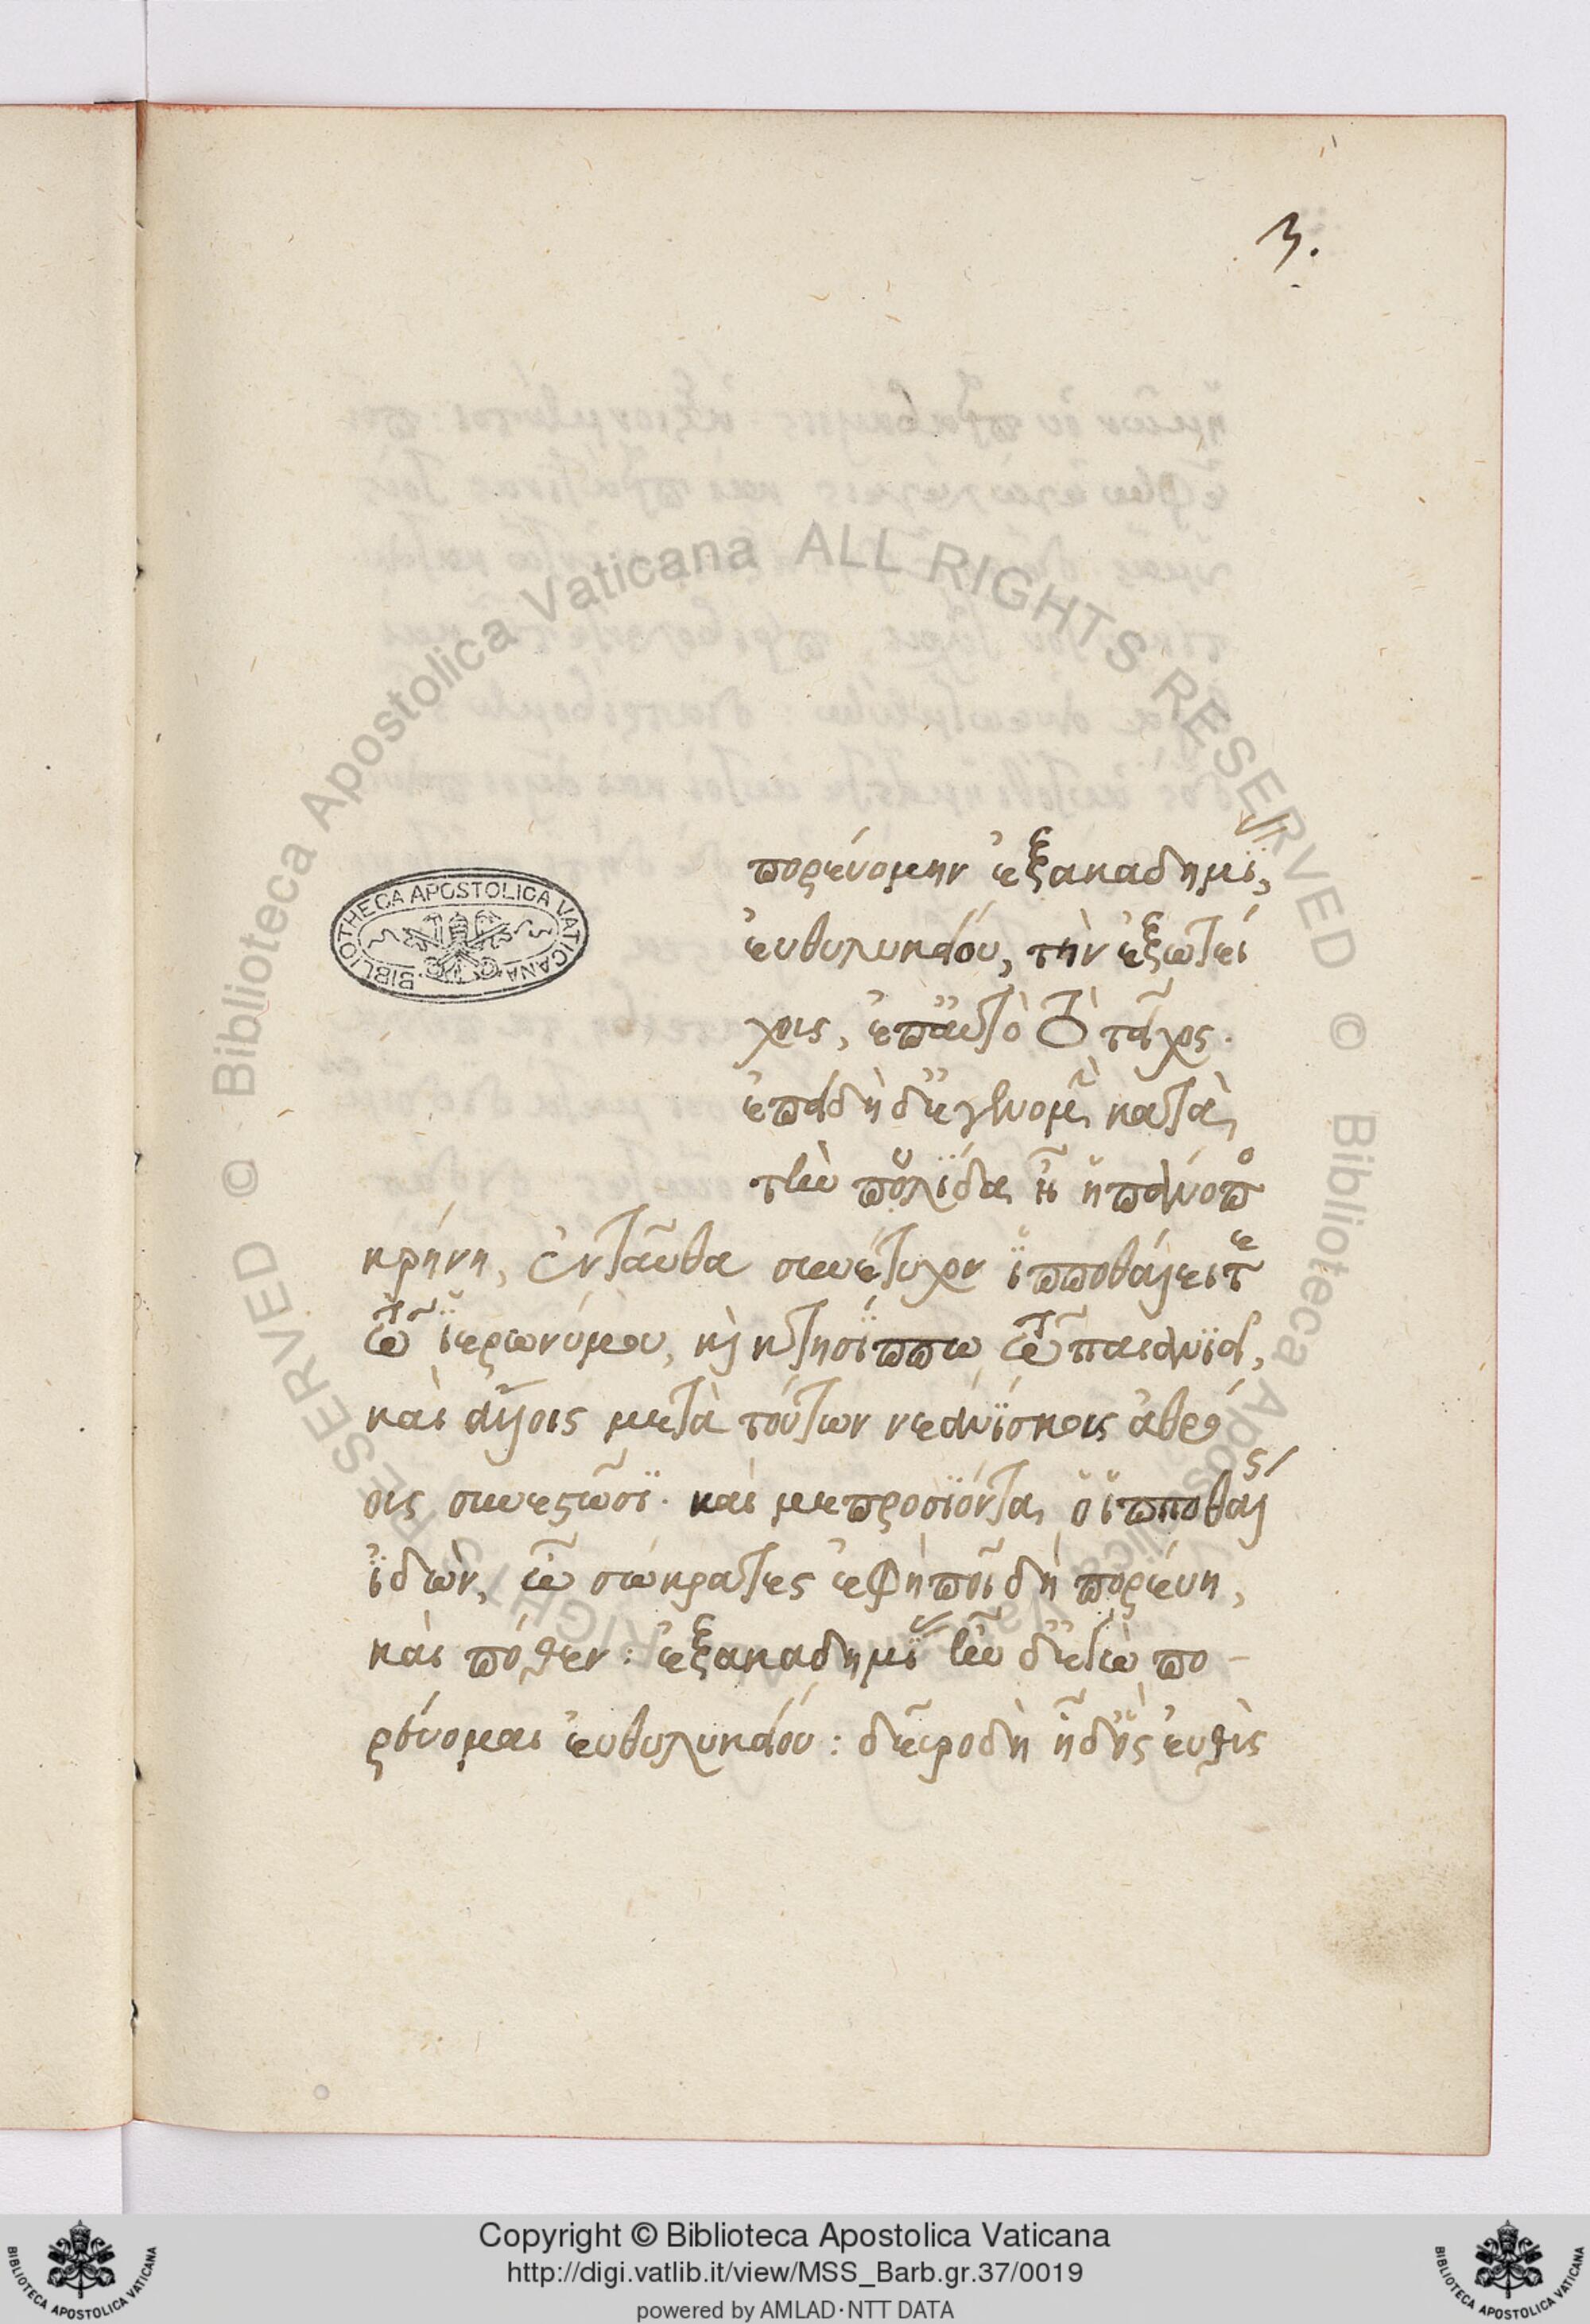 3.
πορευόμην ἐξακαδημίας,
εὐθυλυκείου, τὴν ἐξωτεί
χοις, ἐπαυτὸ τὸ τεῖχος.
ἐπειδὴ δ' ἐγενόμην κατὰ
τὴν πυλίδα ᾗ ἡ πάνοπος
κρήνη, ἐνταῦθα συνέτυχον ἱπποθάλει τε
τῶ ἱερωνύμου, καὶ κτησίππω τῶ παιανιεῖ,
καὶ ἄλλοις μετὰ τούτων νεανίσκοις ἁθρό
οις συνεστῶσι. καί με προσιόντα ὁ ἱπποθάλης
ἰδὼν, ὦ σώκρατες ἔφη ποῖ δὴ πορεύη,
καὶ πόθεν: ἐξακαδημίας ἦν δ' ἐγὼ πο-
ρεύομαι εὐθυλυκείου: δεῦρο δὴ ἦ δ' ὃς εὐθὺς
BIBLIOTHECA APOSTOLICA VATICANA
BIBL
© Biblioteca Apostolica Vaticana ALL RIGHTS RESERVED
© Biblioteca Apostolica Vaticana ALL RIGHTS RESERVED
Copyright © Biblioteca Apostolica Vaticana
http://digi.vatlib.it/view/MSS_Barb.gr.37/0019
powered by AMLAD·NTT DATA
BIBLIOTECA APOSTOLICA VATICANA
BIBLIOTECA APOSTOLICA VATICANA